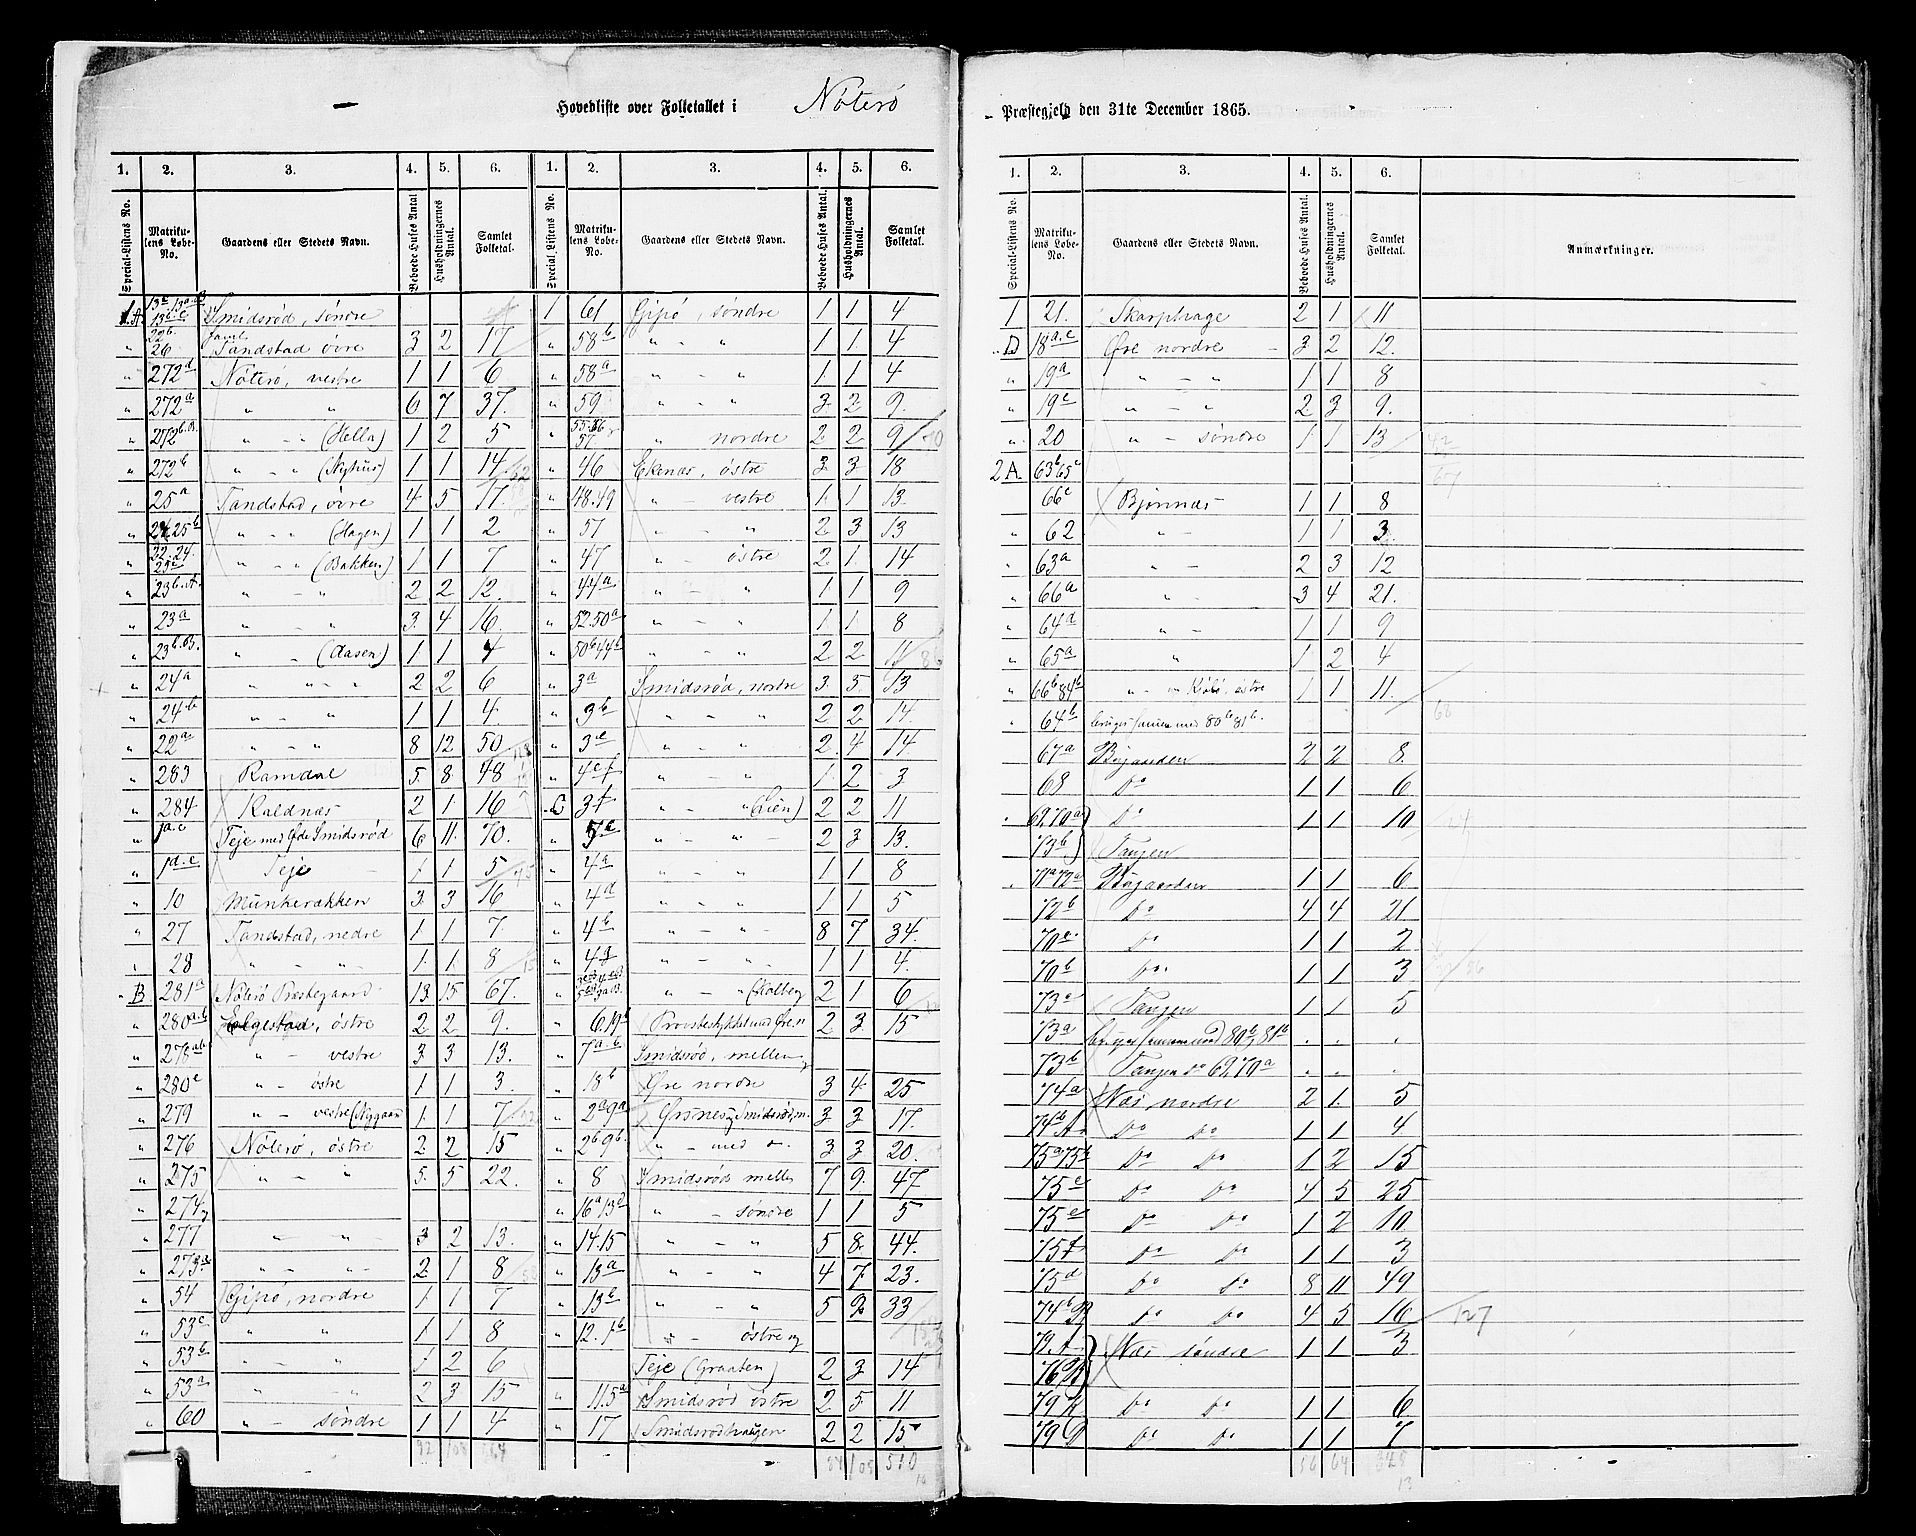 Hovedliste over Folketallet i Nøterø Præstegjeld den 31te December 1865.
1. 2. 3. 4. 5. 6. 1. 2. 3. 4. 5. 6.
Special-Listens No. Matrikulens Løbe-No. Gaardens eller Stedets Navn. Beboede Huses Antal Husholdningernes Antal. Samlet Folketal. Special Listens No. Matrikulens Løbe-No. Gaardens eller Stedets Navn. Beboede Huses Antal. Husholdningernes Antal. Samlet Folketal.
1.A. Smidsrød, søndre
" 26 Tandstad övre 3 2 17
" 272d Nöterö, vestre 1 1 6
" 272a " " 6 7 37.
" 272b.B. " - " (Hella) 1 2 5
" 272b " - " (Nyhus) 1 1 14
" 25a Tandstad, övre 4 5 17
" 25b " - " (Hagen) 1 1 2
" 32.24. " - " (Bakken) 1 1 7
" 23b.A. " - " 2 2 12.
" 23a " - " 3 4 16.
" 23b.B. " - (Aasen) 1 1 4
" 24a " - " 2 2 6
" 24b " - " 1 1 4.
" 22a " - " 8 12 50
" 283 Ramdal 5 8 48
" 284 Kaldnæs 2 1 16
" 1a.c Teje med Öde Smidsrød 6 11 70.
" 1d.e Teje 1 1 5
" 10 Munkerækken 3 3 16
" 27 Tandstad, nedre 1 1 7.
" 28 " - " 1 1 8
B 281a Nöterö Præstegaard 13 15 67.
" 280a.b Elgestad, östre 2 2 9.
" 278ab " - vestre 3 3 13.
" 280c " - östre 1 1 3.
" 279 " - vestre (Nygaar 1 1 7
" 276 Nöterö, östre 2 2 15
" 275 " - " 5 5 22.
" 274
" 277 " - " 3 2 13.
" 273a " - " 2 1 8
" 54 Gipö, nordre 1 1 7
" 53c " " 1 1 8
" 53b " - " 1 2 6
" 53a " - " 2 3 15
" 60 " - søndre 1 1 4
1 61 Gipö, søndre 1 1 4
" 58b " - " 1 1 4
" 58a " - " 1 1 4
" 59 " - " 3 2 9.
" 57 " nordre 2 2 9
" 46 Ekenæs, östre 3 3 18
" 48.49 " - vestre 1 1 13.
" 57 " - " 2 3 13
" 47 " - östre 2 1 14
" 44a " - " 1 1 9
" 52.50a " - " 1 1 8
" 50b 44b " - " 2 2 11
" 3a Smidsrød, nordre 3 5 13
" 3b " - " 2 2 14.
" 3e " - " 2 4 14
" 4e.f " - " 1 2 3
C 3f " - " (Lien) 2 2 11
" " - " 2 3 13.
" 4a " - " 1 1 8
" 4d " - " 1 1 5
" 4b " - " 8 7 34.
" 4g " - " 1 1 4.
" " - " (Kolberg 2 1 6
" 6.19b Provstestykket med Øre n 2 3 15
" 7a.b Smidsrød, mellem
" 18b Øre nordre 3 4 25
" 2a9a Ørsnes og Smidsrød, m. 3 3 17.
" 2b9b " - med 3 3 20.
" 8 Smidsrød mellem 7 9 47
16a13d " - søndre 1 1 5
" 14.15 " - " 5 8 44.
" 13a " - " 4 7 23.
" 13b " - " 5 9 33
" 12.1b " - östre og
Teje (Graaten) 2 3 14
" 11.5a Smidsrød östre 2 5 11
" 17 Smidsrødhaugen 2 2 15
92 103 564 84 109 510
1. 2. 3. 4. 5. 6.
Special-Listens No. Matrikulens Løbe-No. Gaardens eller Stedets Navn. Beboede Huses Antal. Husholdningernes Antal. Samlet Folketal. Anmærkninger.
1 21. Skarphage 2 1 11
D 18a.c Øre nordre 3 2 12.
" 19a " - " 1 1 8
" 19c " - " 2 3 9.
" 20 " - søndre 1 1 13
2A 63b65c
66c Bjønnæs 1 1 8
" 62 " - 1 1 3
" 63a " - 2 3 12
" 66a " - 3 4 21.
" 64a " - 1 1 9
" 65a " 1 2 4
" 66b84b " - östre 1 1 11.
" 64b bruges sammen med 80b 81b.
" 67a Bøgaarden 2 2 8.
" 68 Do 1 1 6
" 62.70a Do 1 1 10
73b Tangen
71a72a Bøgaarden 1 1 6
72b Do 4 4 21
70c Do 1 1 2
70b Do 1 1 3
73c Tangen 1 1 5
73a bruges sammen med 80b, 81b . . .
73b Tangen do 62.70a . . .
74a Næs nordre 2 1 5
74b A. Do Do 1 1 4
75a75b Do Do 1 2 15
75c Do Do 4 5 25
75e Do Do 1 2 10
75f Do Do 1 1 3
75d Do Do 8 11 49
74b B Do Do 4 5 16 127
Næs søndre 1 1 3
76
79 Do Do 1 1 6
79 Do Do 1 1 7
56 64 328
13